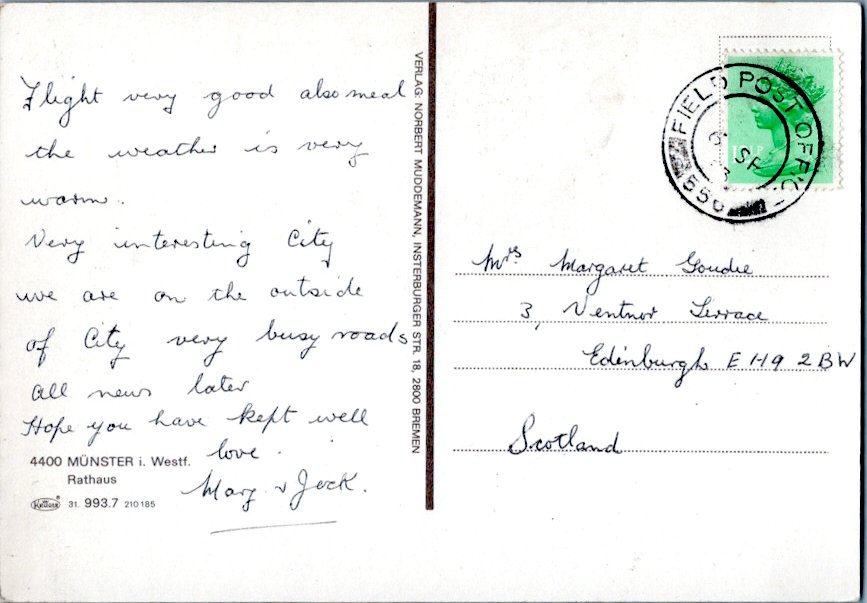 Flight very good also meal
the weather is very
warm.
Very interesting City
we are on the outside
of City very busy roads
All news later
Hope you have kept well
love.
Mary & Jock.
4400 MÜNSTER i. Westf.
Rathaus
Krüger 31. 993.7 210 185
VERLAG: NORBERT MUDDEMANN, INSTERBURGER STR. 18, 2800 BREMEN
FIELD POST OFFICE
SP
556
Mrs Margaret Goudie
3, Ventnor Terrace
Edinburgh EH9 2BW
Scotland